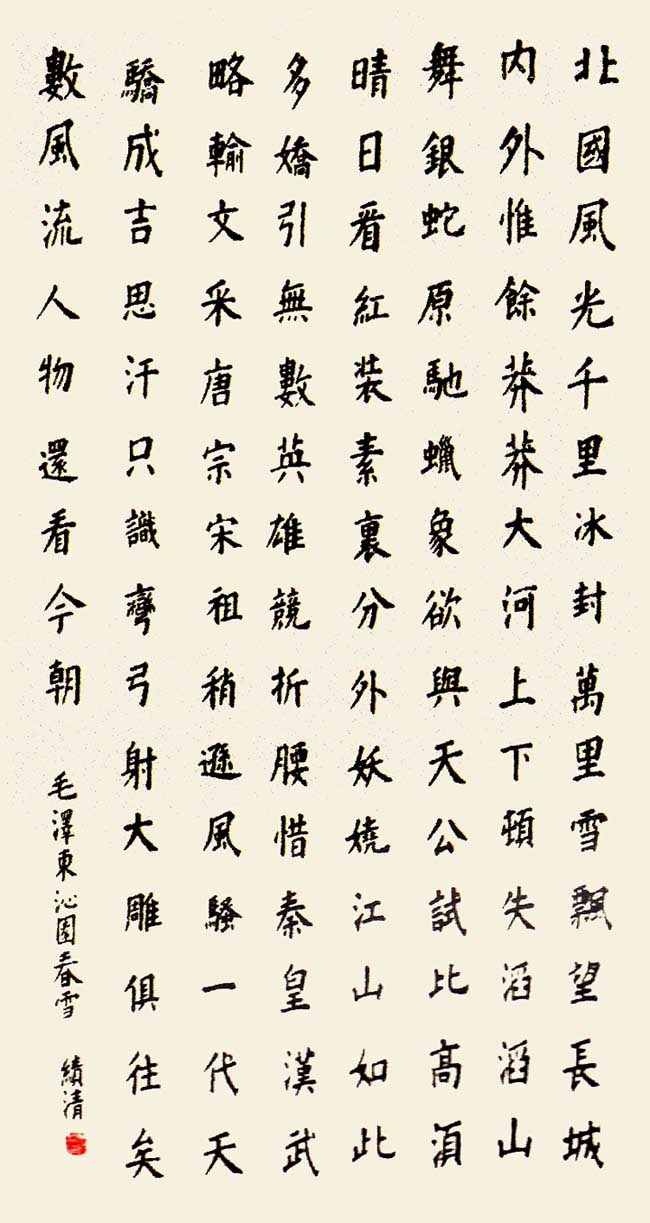 北國風光千里冰封萬里雪飄望長城
內外惟餘莽莽大河上下頓失滔滔山
舞銀蛇原馳蠟象欲與天公試比高湏
晴日看紅裝素裹分外妖嬈江山如此
多嬌引無數英雄競折腰惜秦皇漢武
略輸文采唐宗宋祖稍遜風騷一代天
驕成吉思汗只識彎弓射大雕俱往矣
數風流人物還看今朝
毛澤東沁園春雪 績清